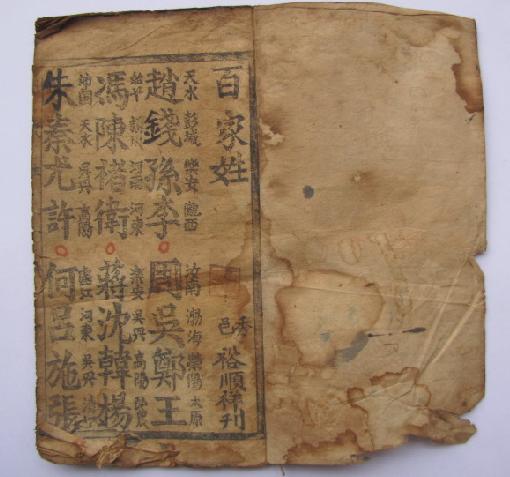 百家姓 秀邑 裕順祥刊
天水 彭城 樂安 隴西 汝南 渤海 滎陽 太原
趙錢孫李 周吳鄭王
河東 吳興 高陽
馮陳褚衛 蔣沈韓楊
沛國 天水 吳興 高陽 廬江 河東 吳興
朱秦尤許 何呂施張